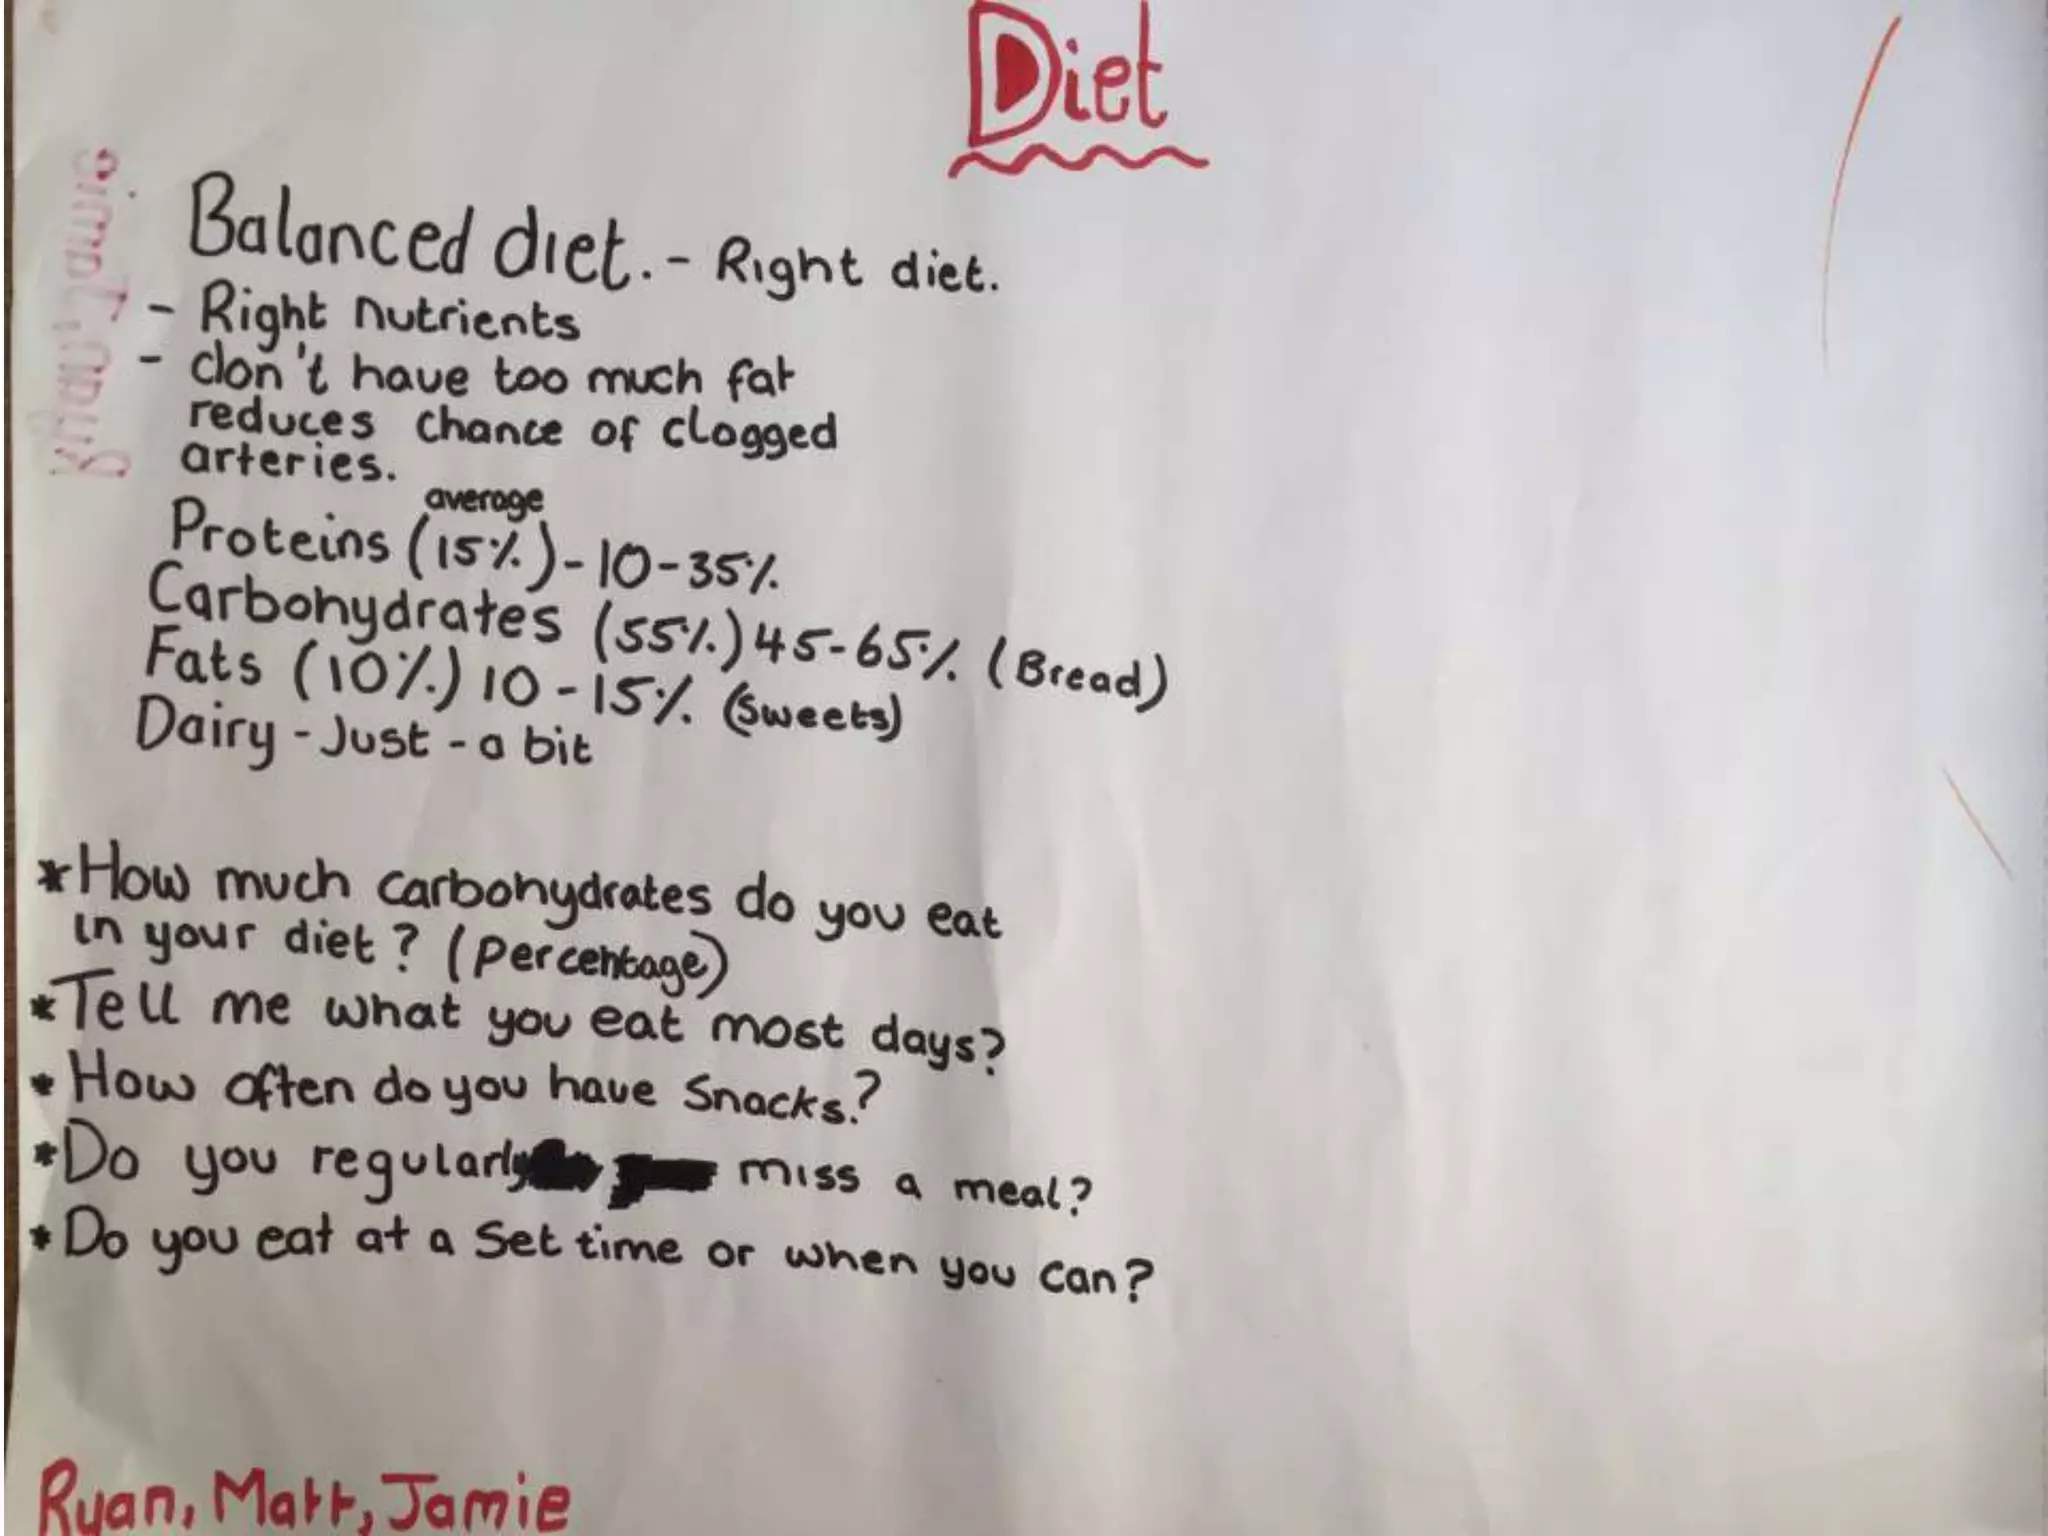 Diet
Balanced diet. - Right diet.
- Right nutrients
- don't have too much fat
reduces chance of clogged
arteries.
average
Proteins (15%) - 10-35%
Carbohydrates (55%) 45-65% (Bread)
Fats (10%) 10-15% (Sweets)
Dairy - Just - a bit
*How much carbohydrates do you eat
in your diet? (Percentage)
*Tell me what you eat most days?
*How often do you have Snacks.?
*Do you regularly miss a meal?
*Do you eat at a Set time or when you can?
Ryan, Matt, Jamie